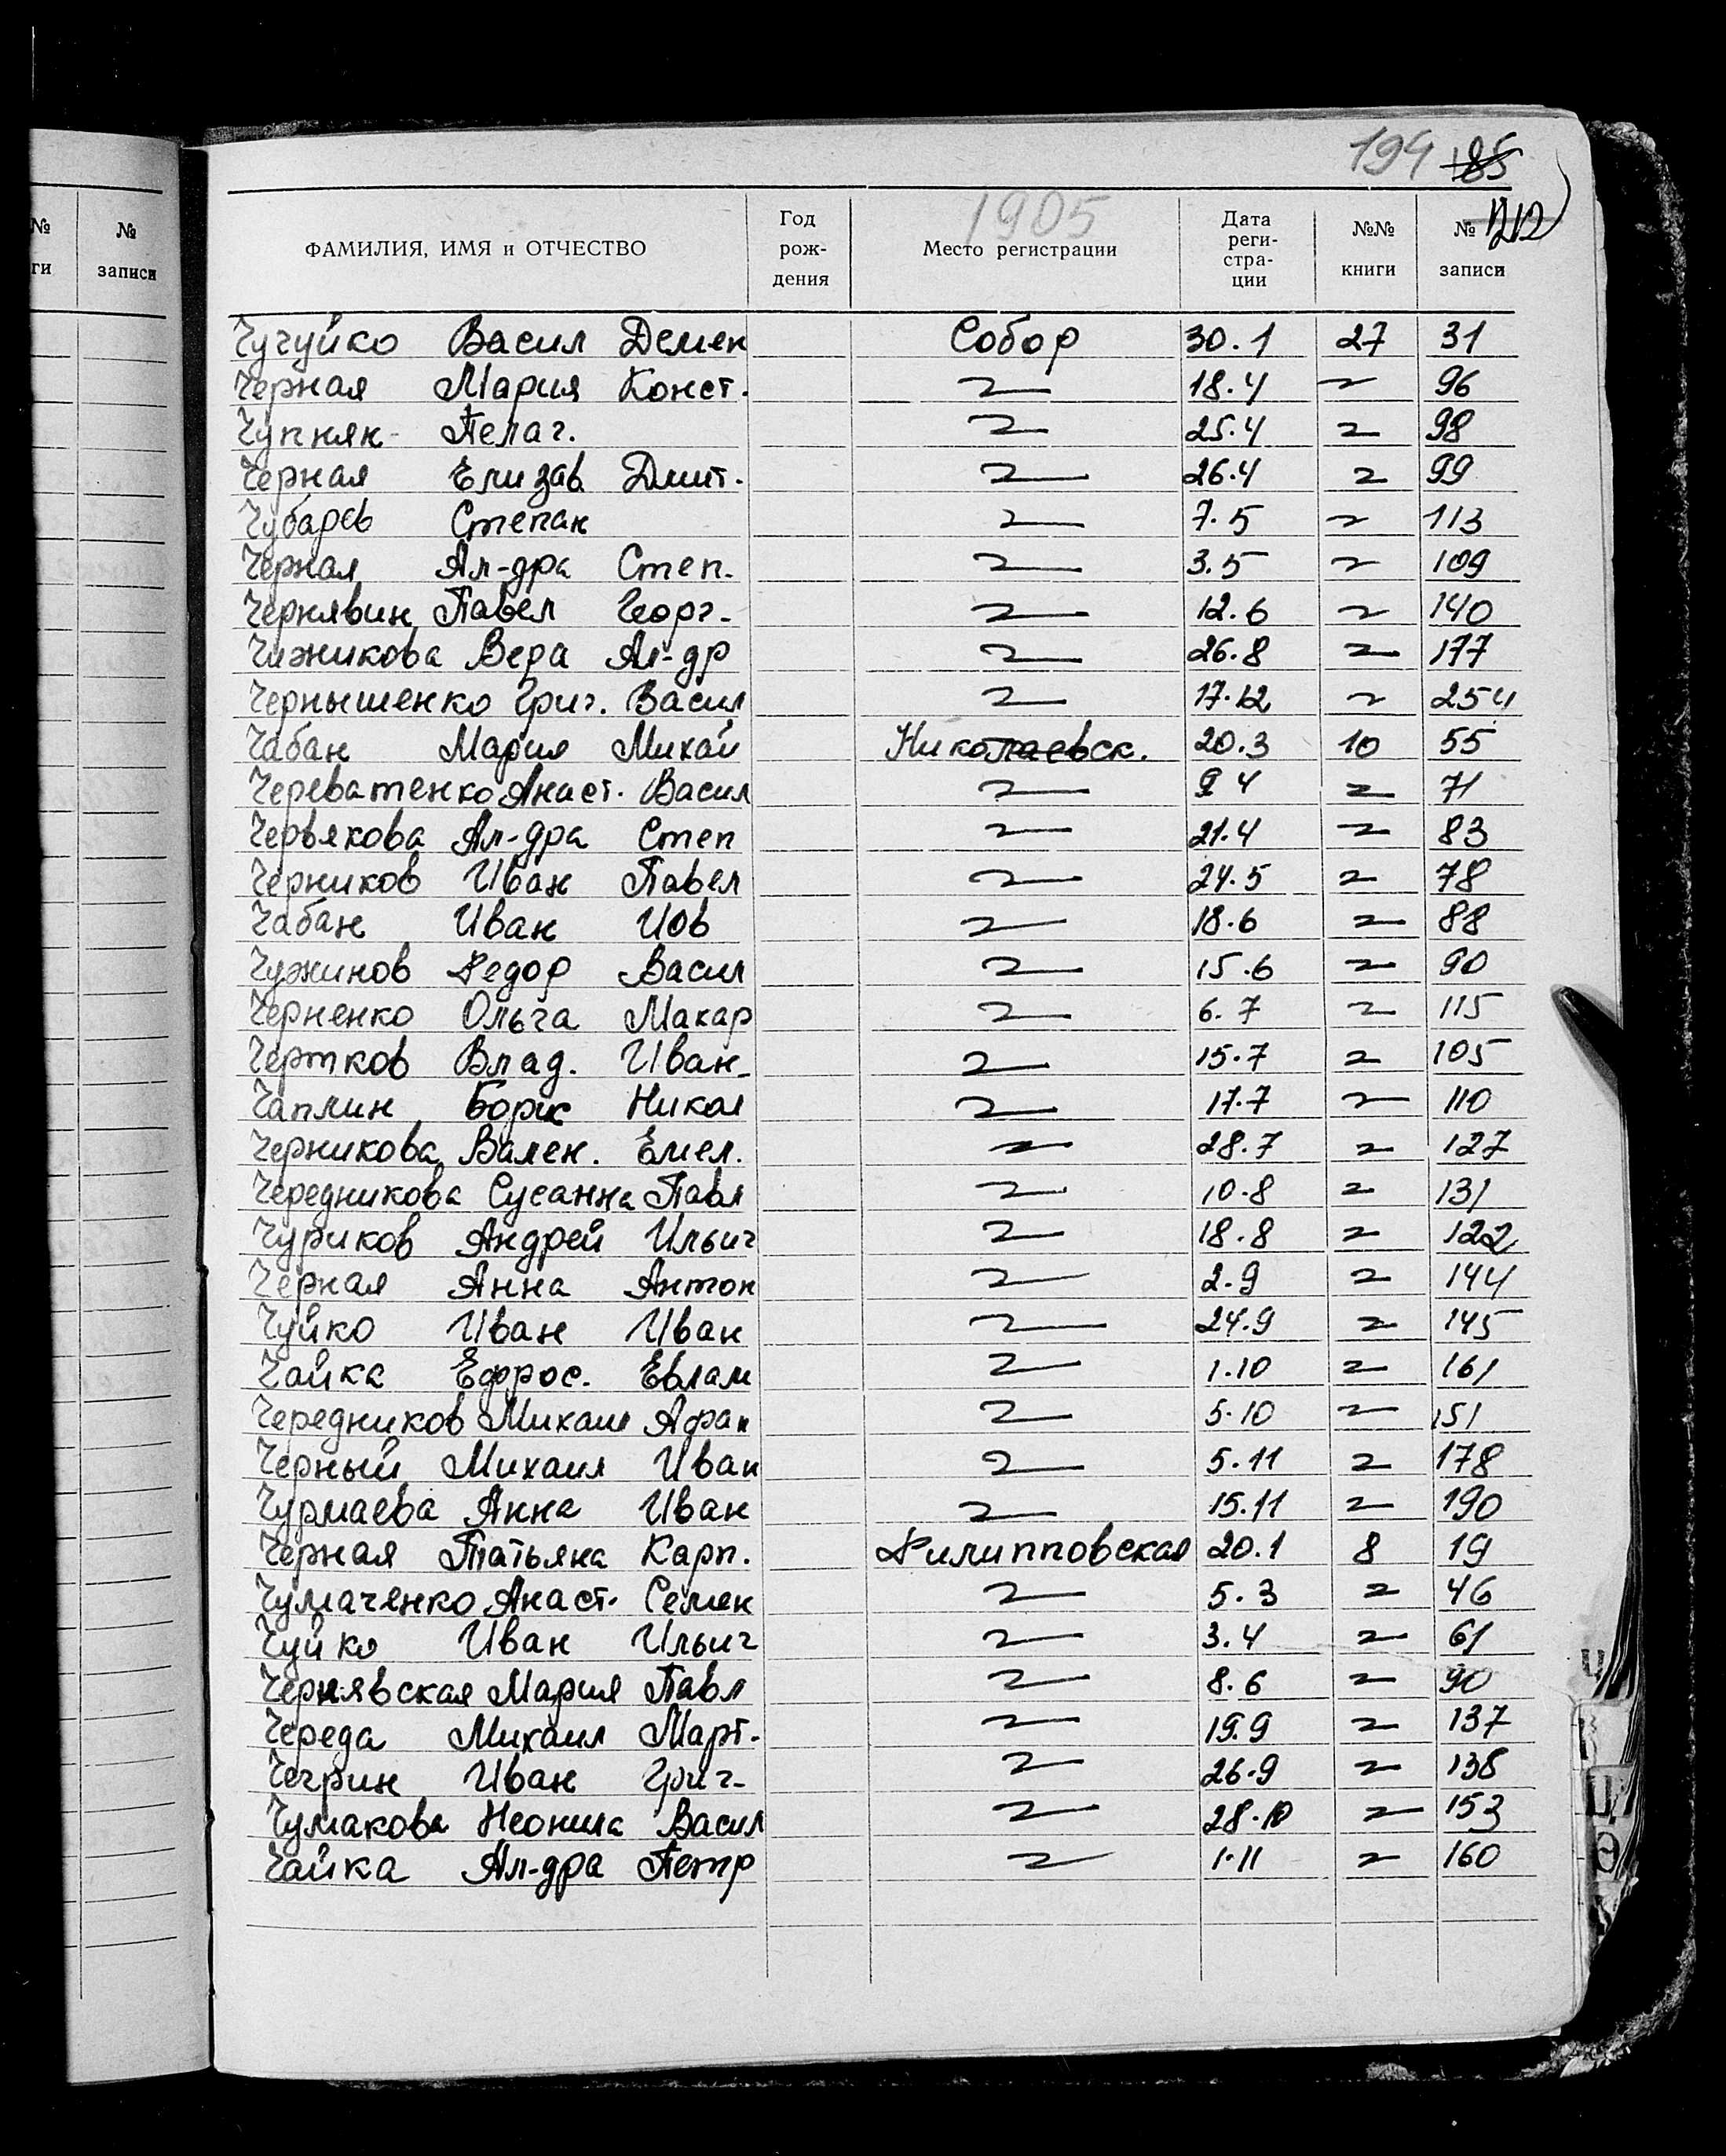 194 185
212
1905
№ ги № записи
ФАМИЛИЯ, ИМЯ и ОТЧЕСТВО Год рождения Место регистрации Дата регистрации №№ книги № записи
Чучуйко Васил Демен Собор 30.1 27 31
Черная Мария Конст. 〃 18.4 〃 96
Чупняк Пелаг. 〃 25.4 〃 98
Черная Елизав Дмит. 〃 26.4 〃 99
Чубарев Степан 〃 7.5 〃 113
Черная Ал-дра Степ. 〃 3.5 〃 109
Чернявин Павел Георг. 〃 12.6 〃 140
Чижникова Вера Ал-др 〃 26.8 〃 177
Чернышенко Григ. Васил 〃 17.12 〃 254
Чабан Мария Михай Николаевск. 20.3 10 55
Череватенко Анаст. Васил 〃 9 4 〃 71
Червякова Ал-дра Степ 〃 21.4 〃 83
Черников Иван Павел 〃 24.5 〃 78
Чабан Иван Иов 〃 18.6 〃 88
Чужинов Федор Васил 〃 15.6 〃 90
Черненко Ольга Макар 〃 6.7 〃 115
Чертков Влад. Иван 〃 15.7 〃 105
Чаплин Борис Никол 〃 17.7 〃 110
Черникова Вален. Емел. 〃 28.7 〃 127
Чередникова Сусанна Павл 〃 10.8 〃 131
Чуриков Андрей Ильич 〃 18.8 〃 122
Черная Анна Антон 〃 2.9 〃 144
Чуйко Иван Иван 〃 24.9 〃 145
Чайка Ефрос. Евлам 〃 1.10 〃 161
Чередников Михаил Афан 〃 5.10 〃 151
Черный Михаил Иван 〃 5.11 〃 178
Чурмаева Анна Иван 〃 15.11 〃 190
Черная Татьяна Карп. Филипповская 20.1 8 19
Чумаченко Анаст. Семен 〃 5.3 〃 46
Чуйко Иван Ильич 〃 3.4 〃 61
Чернявская Мария Павл 〃 8.6 〃 90
Череда Михаил Март. 〃 19.9 〃 137
Чегрин Иван Григ. 〃 26.9 〃 138
Чумакова Неонила Васил 〃 28.10 〃 153
Чайка Ал-дра Петр 〃 1.11 〃 160